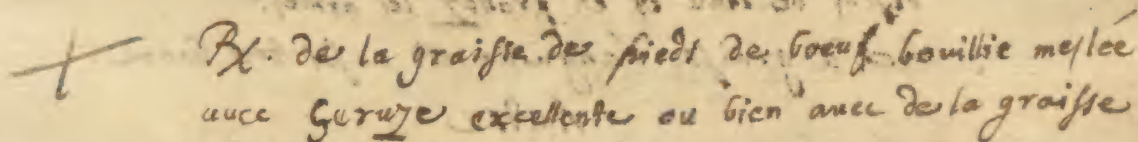 ℞. de la graisse de pieds de boeuf bouillie meslée
auec Ceruze excellente ou bien auec de la graisse